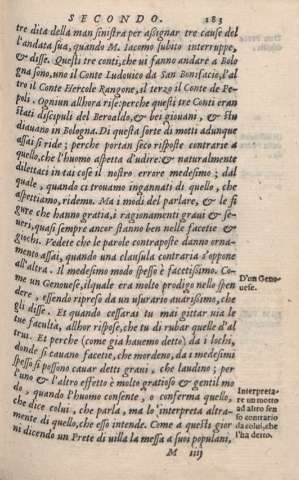 SECONDO. 183
tre dita della man sinistra per assignar tre cause del
l'andata sua, quando M. Iacomo subito interruppe,
& disse. Questi tre conti, che ui fanno andare a Bolo
gna sono, uno il Conte Ludouico da San Bonifacio, l'al
tro il Conte Hercole Rangone, il terzo il Conte de Pe-
poli. Ogniun allhora rise: perche questi tre Conti eran
stati discipuli del Beroaldo, & bei giouani, & stu
diauano in Bologna. Di questa sorte di motti adunque
assai si ride; perche portan seco risposte contrarie a
quello, che l'huomo aspetta d'udire: & naturalmente
dilettaci in tai cose il nostro errore medesimo; dal
quale, quando ci trouamo ingannati di quello, che
aspettiamo, ridemo. Ma i modi del parlare, & le fi
gure che hanno gratia, i ragionamenti graui & se-
ueri, quasi sempre ancor stanno ben nelle facetie &
giochi. Vedete che le parole contraposte danno orna-
mento assai, quando una clausula contraria s'oppone
all'altra. Il medesimo modo spesso è facetissimo. Co-
me un Genouese, ilquale era molto prodigo nello spen
dere, essendo ripreso da un usurario auarissimo, che
gli disse. Et quando cessarai tu mai gittar uia le
tue facultà, allhor rispose, che tu di rubar quelle d'al
trui. Et perche (come già hauemo detto) da i lochi,
donde si cauano facetie, che mordeno, da i medesimi
spesso si possono cauar detti graui, che laudino; per
l'uno & l'altro effetto è molto gratioso & gentil mo
do, quando l'huomo consente, o conferma quello,
che dice colui, che parla, ma lo interpreta altra-
mente di quello, che esso intende. Come a questi gior
ni dicendo un Prete di uilla la messa a suoi populani,
M iiij
D'un Geno-
uese.
Interpreta-
re un motto
ad altro sen
so contrario
da colui, che
l'ha detto.